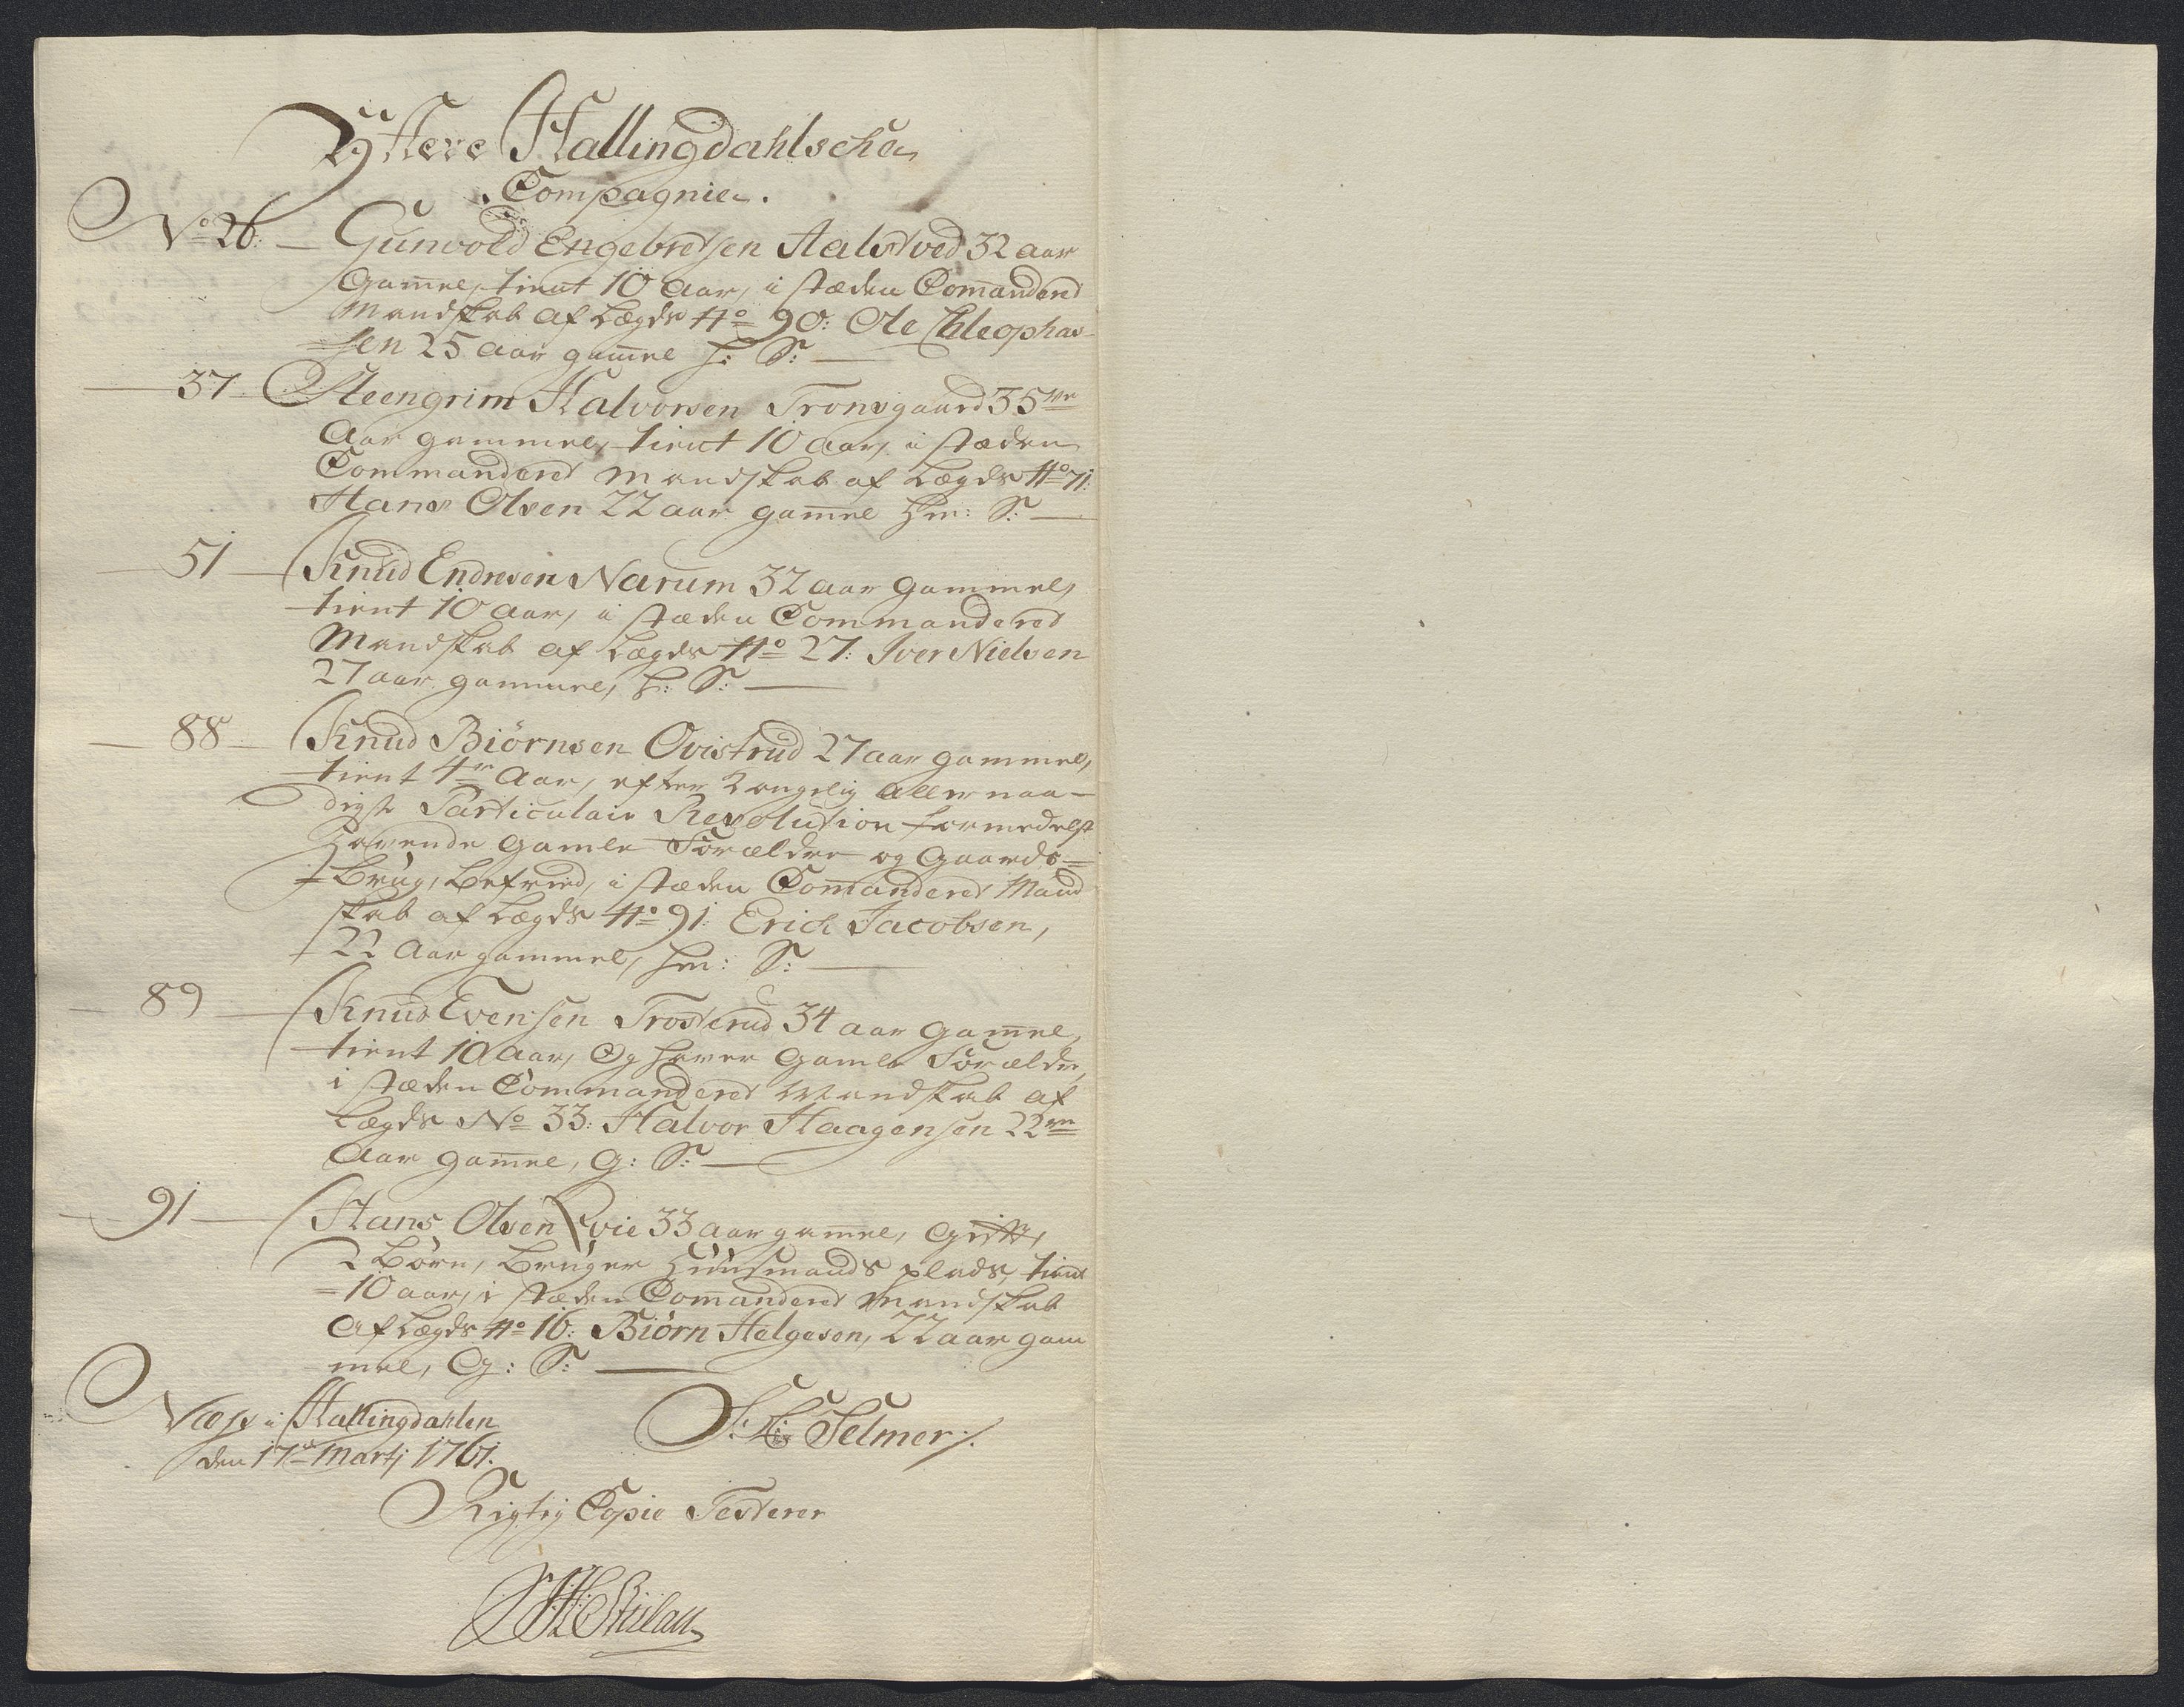 Yttere Hallingdahlsche
Compagnie.
No 26. Gunvold Engebretsen Aalstved 32 aar
Gam̅el, tient 10 Aar, i stæden Com̅anderet
Mandskab af Lægds No 90: Ole Chleophas-
sen 25 aar gam̅el h: S:
37 Steengrim Halvorsen Tronsgaard 35ve
Aar gammel, tient 10 Aar, i stæden
Commanderet Mandskab af Lægds No 71:
Hans Olsen 22 aar gam̅el hm: S:
51 Knud Endresen Narum 32 aar gammel,
tient 10 Aar, i stæden Commanderet
Mandskab af Lægds No 27: Iver Nielsen
27 aar gammel, h: S:
88 Knud Biørnsen Qvistrud 27 aar gammel,
tient 4re Aar, efter Kongelig Allernaa-
digste Particulair Resolution formedelst
Havende gamle Forældre og Gaards-
Brug, Befried, i stæden Com̅anderet Mand
skab af Lægds No 91: Erich Jacobsen,
22 Aar gammel, hm: S:
89 Knud Evensen Trosterud 34 aar gam̅el,
tient 10 Aar, Og haver gamle Forældre,
i stæden Commanderet Mandskab af
Lægds No 33: Halvor Haagensen 22ve
Aar gam̅el, G: S:
91 Hans Olsen Qvie 33 aar gam̅el, Gift,
2 Børn, Bruger Huusmands plads, tient
10 aar, i stæden Com̅anderet Mandskab
Af Lægds No 16: Biørn Helgesen, 22 aar gam
mel, G: S:
Næss i Hallingdahlen
den 17de Martj 1761.
Selmer
Rigtig Copie Testerer